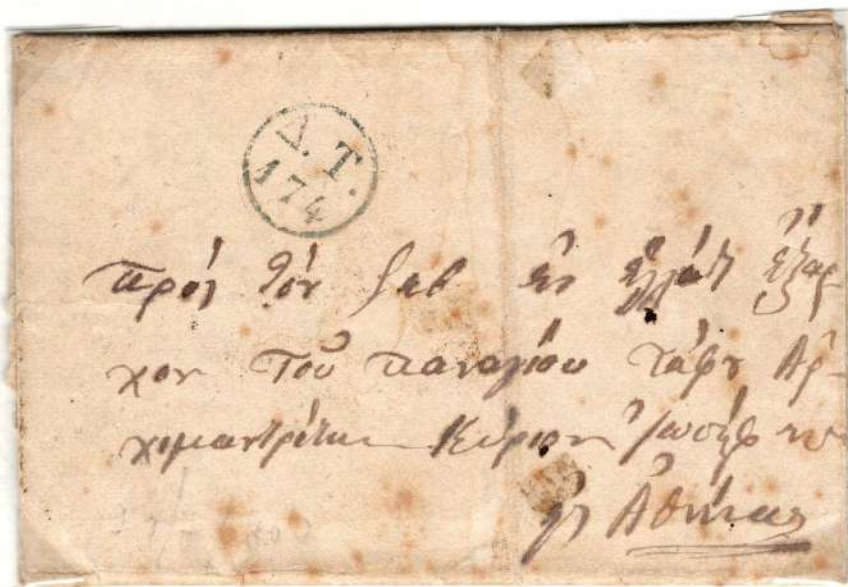 Δ. Τ.
174
πρός τόν Σεβ ἐν Ἑλλάδι ἔξαρ
χον τοῦ παναγίου τάφου Ἀρ-
χιμανδρίτην Κύριον Ἰωσήφ
εἰς Ἀθήνας